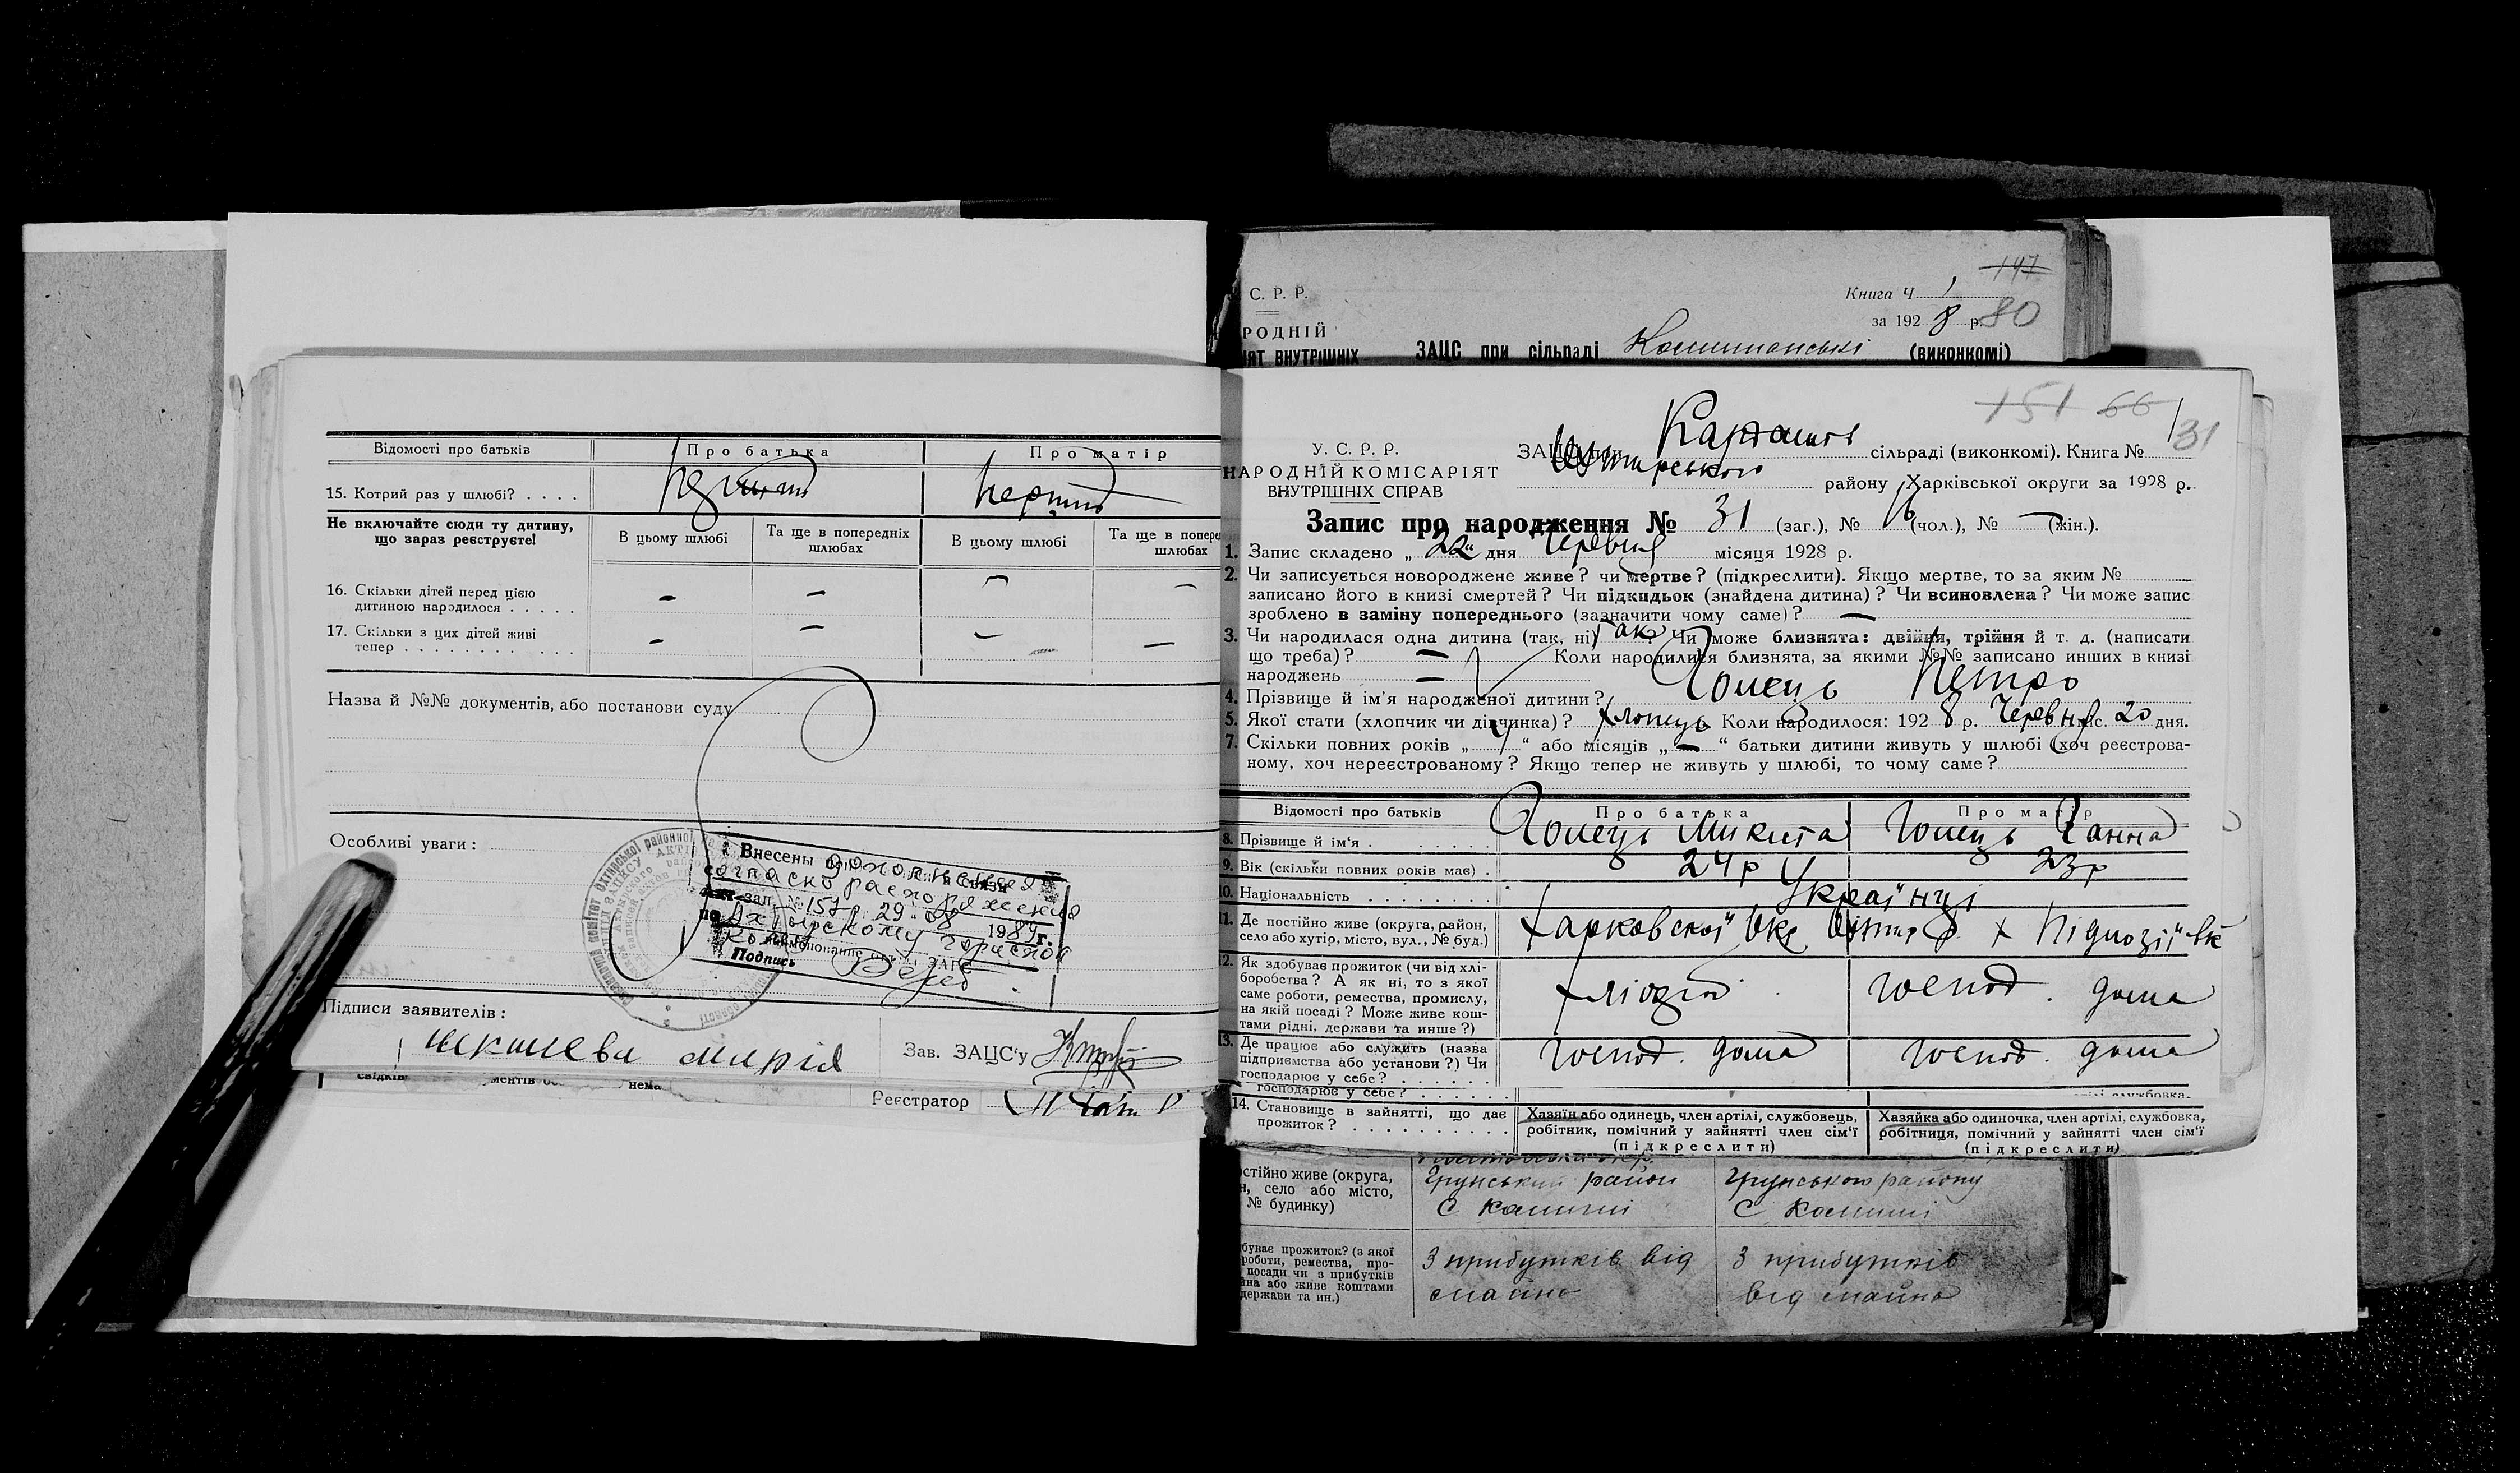 Відомості про батьків
Про батька
Про матір
15. Котрий раз у шлюбі? . . . .
перший
Не включайте сюди ту дитину, що зараз реєструєте!
В цьому шлюбі
Та ще в попередніх шлюбах
В цьому шлюбі
Та ще в попере
шлюбах
16. Скільки дітей перед цією
дитиною народилося . . . . .
– – – –
17. Скільки з цих дітей живі
тепер . . . . . . . . . . .
– – – –
Назва й №№ документів, або постанови суду
Особливі уваги :
Внесены дополнения
согласно распоряжения
№ 157 29-08 1989 г.
по Ахтырскому гориспол
кому
Подпись
Підписи заявителів :
Марія
Зав. ЗАЦС'у
нема
Реєстратор
С. Р. Р.
Книга Ч 1
147
РОДНІЙ
за 1928 р.
80
ЯТ ВНУТРІШНІХ
ЗАЦС при сільраді
(виконкомі)
151 66
31
У. С. Р. Р.
НАРОДНІЙ КОМІСАРІЯТ
ВНУТРІШНІХ СПРАВ
сільраді (виконкомі). Книга № 1
району Харківської округи за 1928 р.
Запис про народження № 31 (заг.), № 16 (чол.), № — (жін.).
1. Запис складено „ 22 “ дня Червня місяця 1928 р.
2. Чи записується новороджене живе? чи мертве? (підкреслити). Якщо мертве, то за яким №
записано його в книзі смертей? Чи підкидьок (знайдена дитина)? Чи всиновлена? Чи може запис
зроблено в заміну попереднього (зазначити чому саме)? —
3. Чи народилася одна дитина (так, ні) так Чи може близнята: двійня, трійня й т. д. (написати
що треба)? — Коли народилися близнята, за якими №№ записано инших в книзі
народжень —
4. Прізвище й ім'я народженої дитини? Гонець Петро
5. Якої стати (хлопчик чи дівчинка)? хлопець Коли народилося: 1928 р. Червня міс. 20 дня.
7. Скільки повних років „ 1 “ або місяців „ — “ батьки дитини живуть у шлюбі (хоч реєстрова-
ному, хоч нереєстрованому? Якщо тепер не живуть у шлюбі, то чому саме?
Відомості про батьків
Про батька
Про матір
8. Прізвище й ім'я . . . . . . . .
Гонець Микита
Гонець Ганна
9. Вік (скільки повних років має) .
24 р
23 р
10. Національність . . . . . . . .
Українці
11. Де постійно живе (округа, район,
село або хутір, місто, вул., № буд.)
Харковської Окр
12. Як здобуває прожиток (чи від хлі-
боробства? А як ні, то з якої
саме роботи, ремества, промислу,
на якій посаді? Може живе кош-
тами рідні, держави та инше?)
господ. дома
13. Де працює або служить (назва
підприємства або установи?) Чи
господарює у себе? . . . . . .
господ. дома
господ. дома
господарює у себе? . . . . . .
14. Становище в зайнятті, що дає
прожиток? . . . . . . . . . .
Хазяїн або одинець, член артілі, службовець,
робітник, помічний у зайнятті член сім'ї
(підкреслити)
Хазяйка або одиночка, член артілі, службовка,
робітниця, помічний у зайнятті член сім'ї
(підкреслити)
остійно живе (округа,
н, село або місто,
№ будинку)
Грунський район
Грунського району
буває прожиток? (з якої
роботи, ремества, про-
посади чи з прибутків
йна або живе коштами
держави та ин.)
З прибутків від
майна
З прибутків
від майна